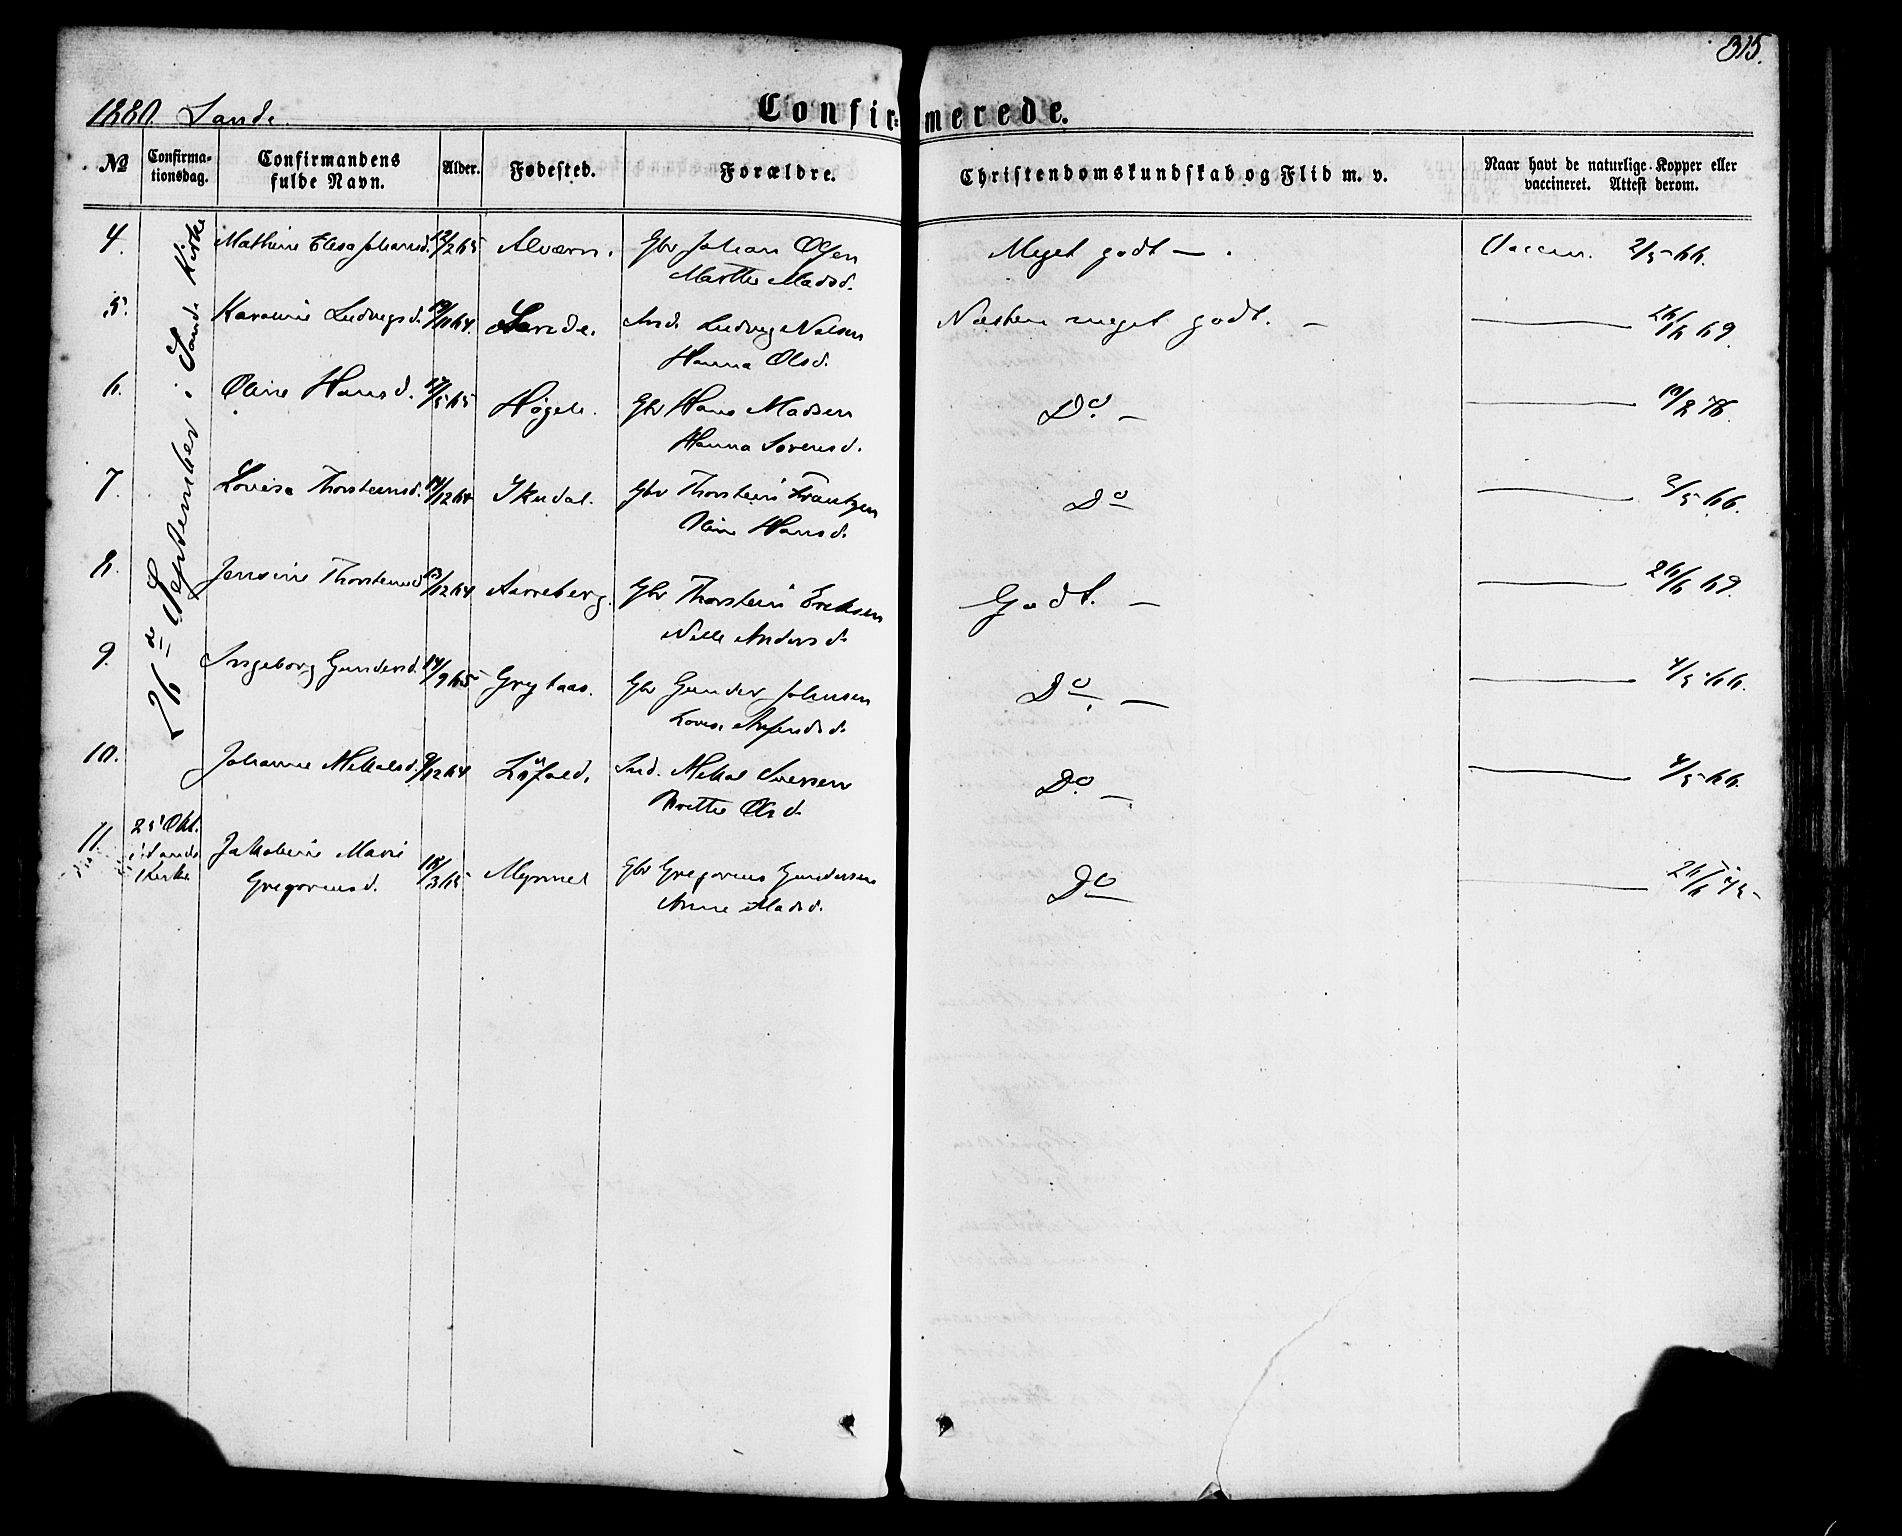 315.
1880. Sande.
Confirmerede.
№
Confirma-
tionsdag.
Confirmandens
fulde Navn.
Alder.
Fødested.
Forældre.
Christendomskundskab og Flid m. v.
Naar havt de naturlige Kopper eller
vaccineret. Attest derom.
26de September i Sande Kirke
4. Mathine Elesa Johansd. 12/2 65 Alværn. Gbr Johan Olsen Meget godt — . Vaccin. 2/5 66.
Marthe Madsd.
5. Karoline Ludvigsd. 19/11 64. Sande. Ind. Ludvig Nilsen Næsten meget godt. — — 26/6 69.
Hanna Olsd.
6. Oline Hansd. 17/5 65 Høgel. Gbr Hans Madsen Do. — — 10/2 76.
Hanna Sørensd.
7. Lovise Thorsteinsd. 14/12 64 Skudal. Gbr Thorstein Frantzen Do — 2/5 66.
Oline Hansd.
8. Jensine Thorsteinsd 13/12 64 Aarreberg. Gbr Thorstein Eriksen Godt. — — 26/6 69
Nille Andersd.
9. Ingeborg Gundersd. 14/9 65 Grytaas. Gbr Gunder Johnsen Do. — — 4/5 66.
Lovise d.
10. Johanne Mikalsd. 9/12 64 Ind. Mikal Iversen Do. — — 4/5 66.
Brette Olsd.
11. 25 Okt. Jakobine Marie
i Sande
Kirke. Gregoriusd. 18/3 65 Myrmel Gbr Gregorius Gundersen Do — 26/6 75
Anne Madsd.